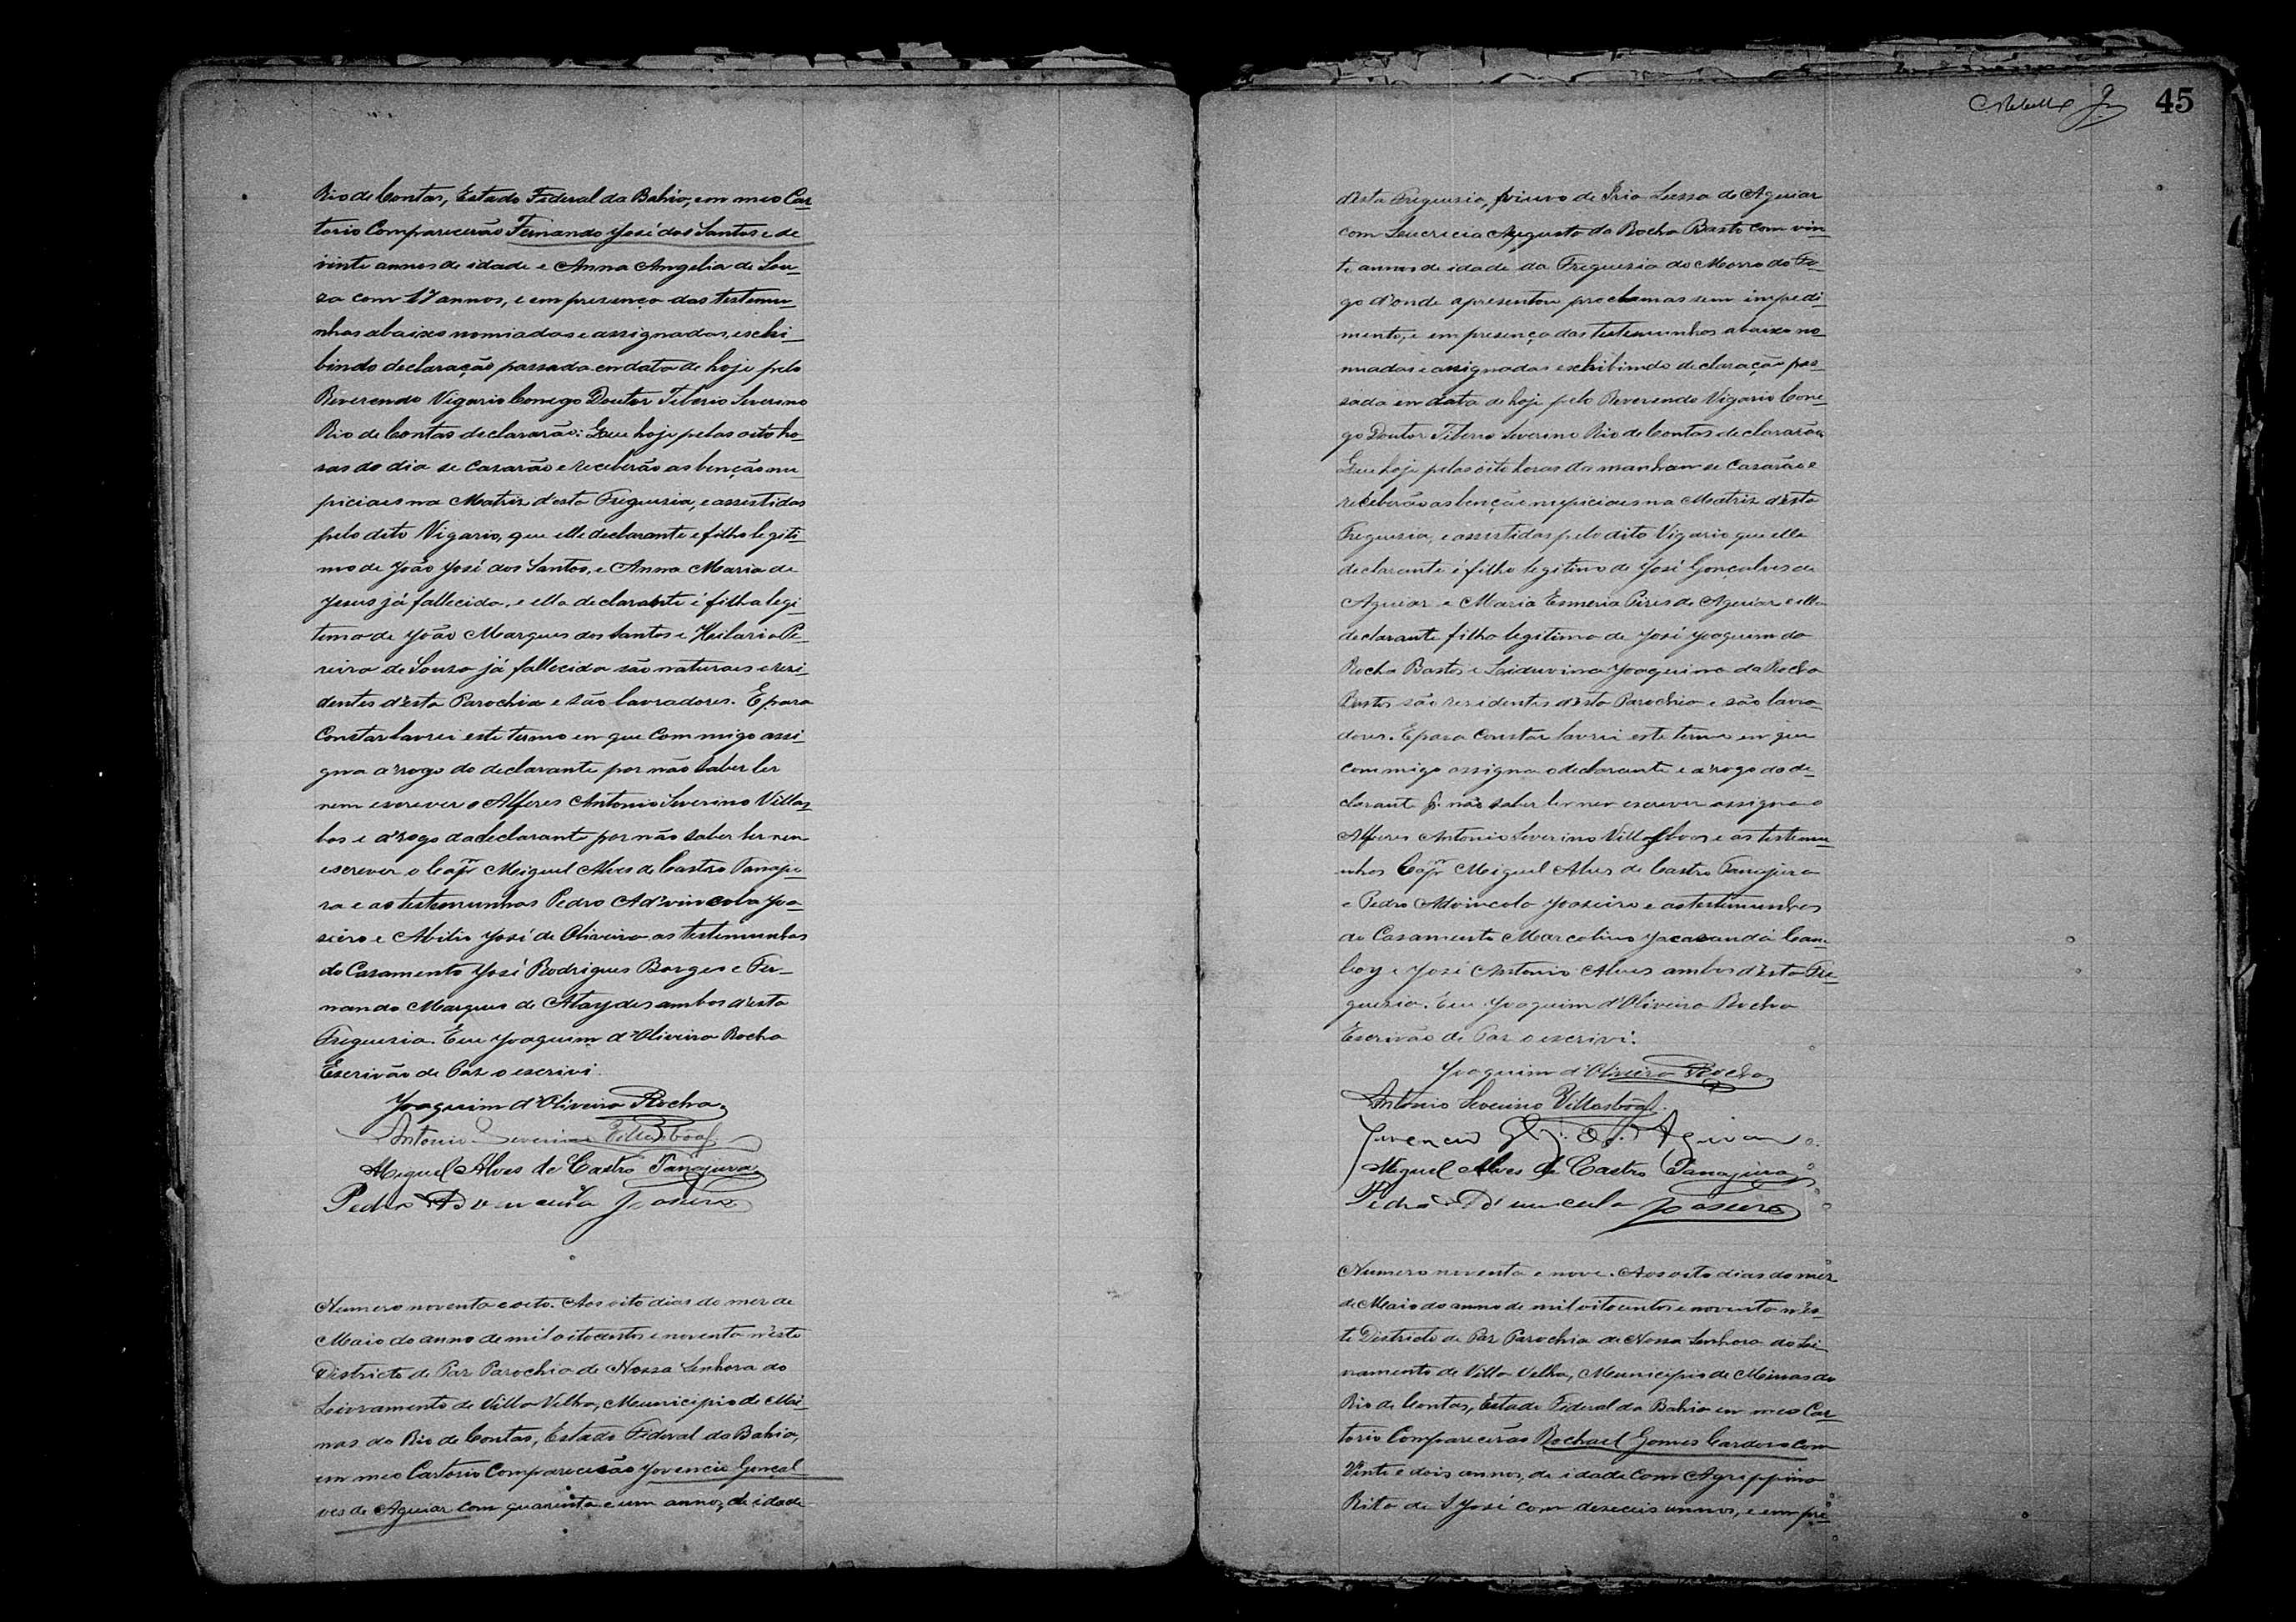 Rio de Contas, Estado Federal da Bahia, em meo Car
torio Comparecerão Fernando José dos Santos e de
vinte annos de idade e Anna Angelia de Sou-
za com 17 annos, e em presença das testemu-
nhas abaixo nomiadas e assignadas, exhi-
bindo declaração passada em data de hoje pelo
Reverendo Vigario Conego Doutor Tiberio Severino
Rio de Contas declararão: Que hoje pelas oito ho-
ras do dia se casarão e receberão as benção nu
piciaes na Matriz d'esta Freguezia, e assistidos
pelo dito Vigario, que elle declarante é filho legiti-
mo de João José dos Santos, e Anna Maria de
Jesus já fallecida, e ella declarante é filha legi-
tima de João Marques dos Santos e Hilaria Pe-
reira de Souza já fallecida são naturaes e rezi-
dentes d'esta Parochia e são lavradores. E para
Constar lavrei este termo em que com migo assi-
gna a rogo do declarante por não saber ler
nem escrever o Alferes Antonio Severino Villas
boas e a rogo da declarante por não saber ler nem
escrever o Capm Miguel Alves de Castro Tanaju-
ra e as testemunhas Pedro Ad'vincola Joa-
zeiro e Abilio José de Oliveira as testemunhas
do Casamento José Rodrigues Borges e Fer-
nando Marques de Ataydes ambos d'esta
Freguezia. Eu Joaquim d'Oliveira Rocha
Escrivão de Paz o escrivi.
Joaquim d'Oliveira Rocha
Antonio Severino Villasboas
Miguel Alves de Castro Tanajura
Pedro AD'vincula Joaseiro
Numero noventa e oito. Aos oito dias do mez de
Maio do anno de mil oitocentos e noventa n'este
Districto de Paz Parochia de Nossa Senhora do
Livramento de Villa Velha, Municipio de Mi-
nas do Rio de Contas, Estado Federal da Bahia,
em meo Cartorio Comparecerão Jovencio Gonçal
ves de Aguiar com quarenta e um annos de idade
45
d'esta Freguezia, viuvo de Iria Lessa de Aguiar
com Leucricia Augusta da Rocha Basto com vin
te annos de idade da Freguezia do Morro do Fo-
go d'onde apresentou proclamas sem impedi-
mento, e em presença das testemunhas abaixo no-
miadas e assignadas exhibindo declaração pas-
sada em data de hoje pelo Reverendo Vigario Cone-
go Doutor Tiberio Severino Rio de Contas declararão
Que hoje pelas oito horas da manham se Casarão e
receberão as benção nupiciaes na Matriz d'esta
Freguezia, e assistidos pelo dito Vigario que elle
declarante é filho legitimo de José Gonçalves de
Aguiar e Maria Esmeria Pires de Aguiar e ella
declarante filha legitima de José Joaquim da
Rocha Bastos e Leiduvina Joaquina da Rocha
Bastos são residentes d'esta Parochia e são lavra-
dores. E para Constar lavrei este termo em que
commigo assigna o declarante e a rogo da de-
clarante p. não saber ler nem escrever assigna o
Alferes Antonio Severino Villasboas e as testemu-
nhas Capm Miguel Alves de Castro Tanajura
e Pedro Advincola Joazeiro e as testemunhas
do Casamento Marcolino Jacarandá Cam-
boy e José Antonio Alves ambos d'esta Fre-
guezia. Eu Joaquim d'Oliveira Rocha
Escrivão de Paz o escrivi.
Joaquim d'Oliveira Rocha
Antonio Severino Villasboas
Juvencio Glz. de Aguiar
Miguel Alves de Castro Tanajura
Pedro AD'vincula Joaseiro
Numero noventa e nove. Aos oito dias do mez
de Maio do anno de mil oitocentos e noventa n'es-
te Districto de Paz Parochia de Nossa Senhora do Li-
vramento de Villa Velha, Municipio de Minas do
Rio de Contas, Estado Federal da Bahia em meo Car-
torio Comparecerão Rochael Gomes Cardoso com
Vinte e dois annos, de idade com Agrippina
Rita de S José com deseceis annos, e em pre-